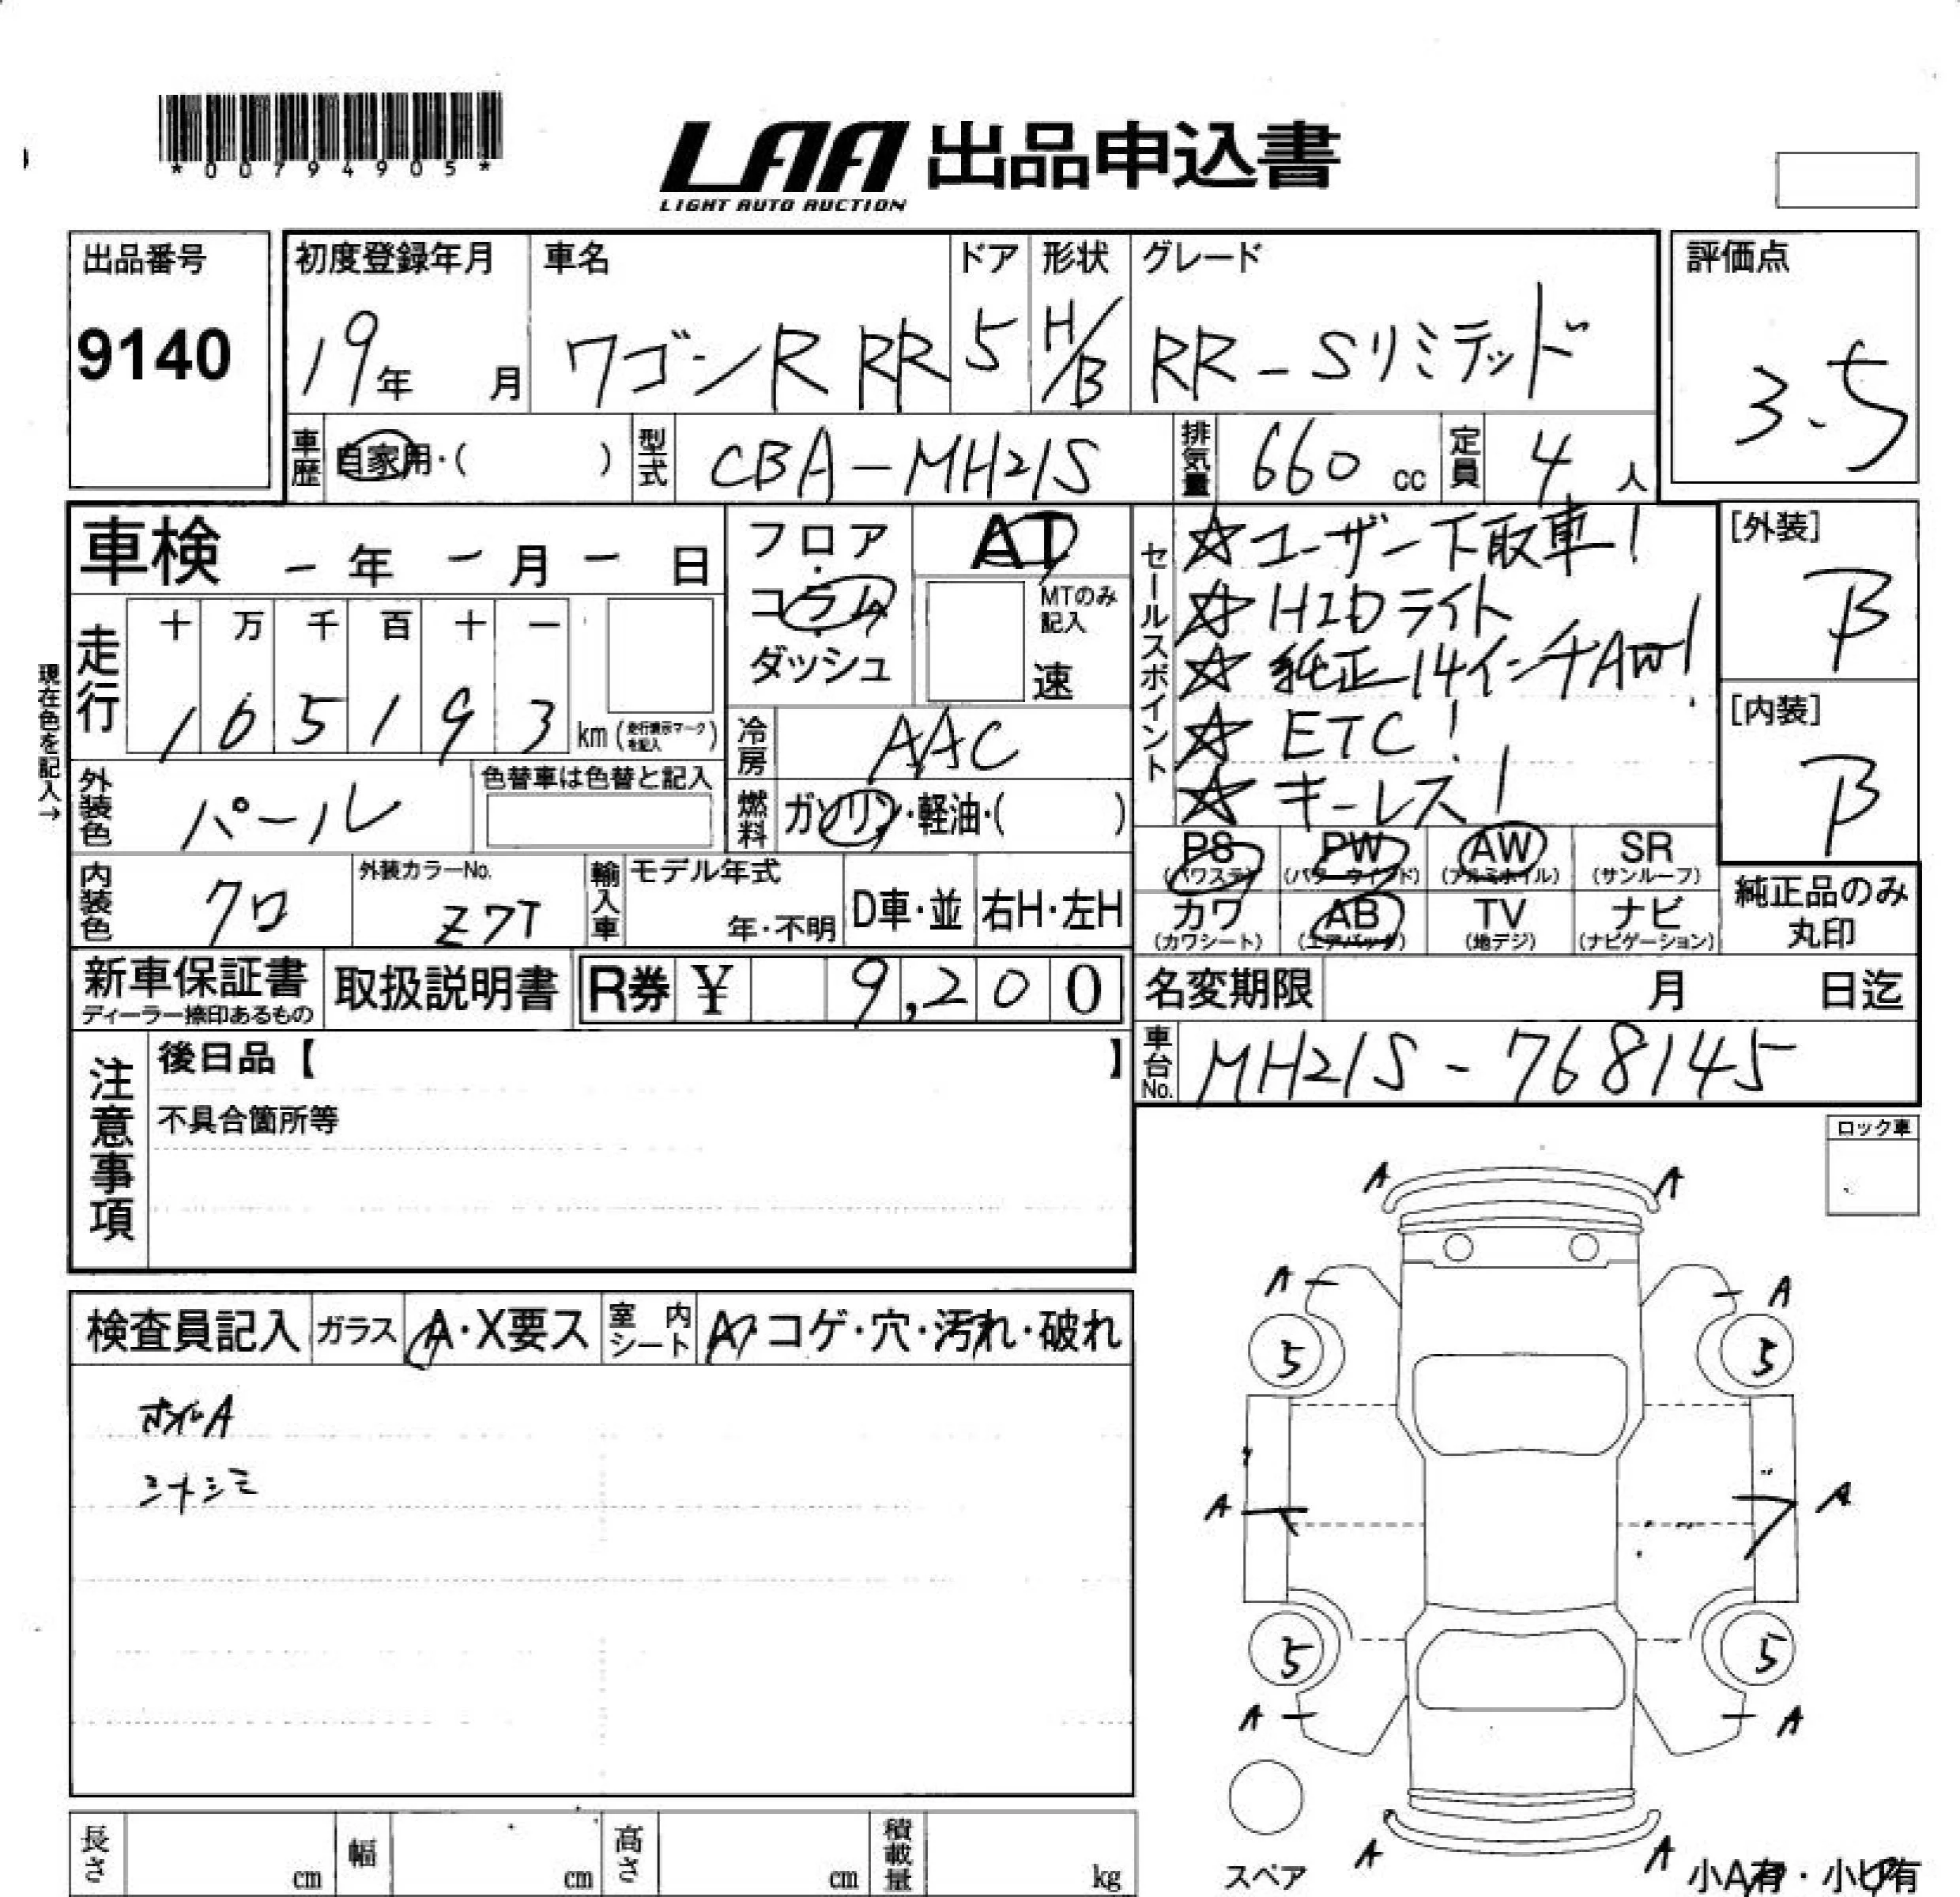 *00794905*
LAA 出品申込書
LIGHT AUTO AUCTION
出品番号
9140
初度登録年月
19年 月
車名
ワゴンR RR
ドア
5
形状
H/B
グレード
RR-Sリミテッド
評価点
3.5
車歴 自家用・( )
型式 CBA-MH21S
排気量 660 cc
定員 4 人
車検 - 年 - 月 - 日
現在色を記入→
走行
十 万 千 百 十 一
1 0 5 1 9 3 km (走行表示マークを記入)
フロア
・
コラム
・
ダッシュ
AT
MTのみ記入
速
冷房 AAC
燃料 ガソリン・軽油・( )
セールスポイント
☆ユーザー下取車!
☆HIDライト
☆純正14インチAW!
☆ETC!
☆キーレス!
[外装]
B
[内装]
B
外装色 パール
色替車は色替と記入
内装色 クロ
外装カラーNo.
Z7T
輸入車
モデル年式
年・不明
D車・並
右H・左H
PS (パワステ)
PW (パワーウインド)
AW (アルミホイル)
SR (サンルーフ)
カワ (カワシート)
AB (エアバッグ)
TV (地デジ)
ナビ (ナビゲーション)
純正品のみ
丸印
新車保証書
ディーラー捺印あるもの
取扱説明書
R券 ¥ 9,200
名変期限 月 日迄
車台No. MH21S-768145
注意事項
後日品【 】
不具合箇所等
ロック車
検査員記入
ガラス A・X要ス
室内シート A・コゲ・穴・汚れ・破れ
ホイルA
シートシミ
A A
A A
5 5
A A
5 5
A A
A A
スペア
小A有・小U有
長さ cm
幅 cm
高さ cm
積載量 kg